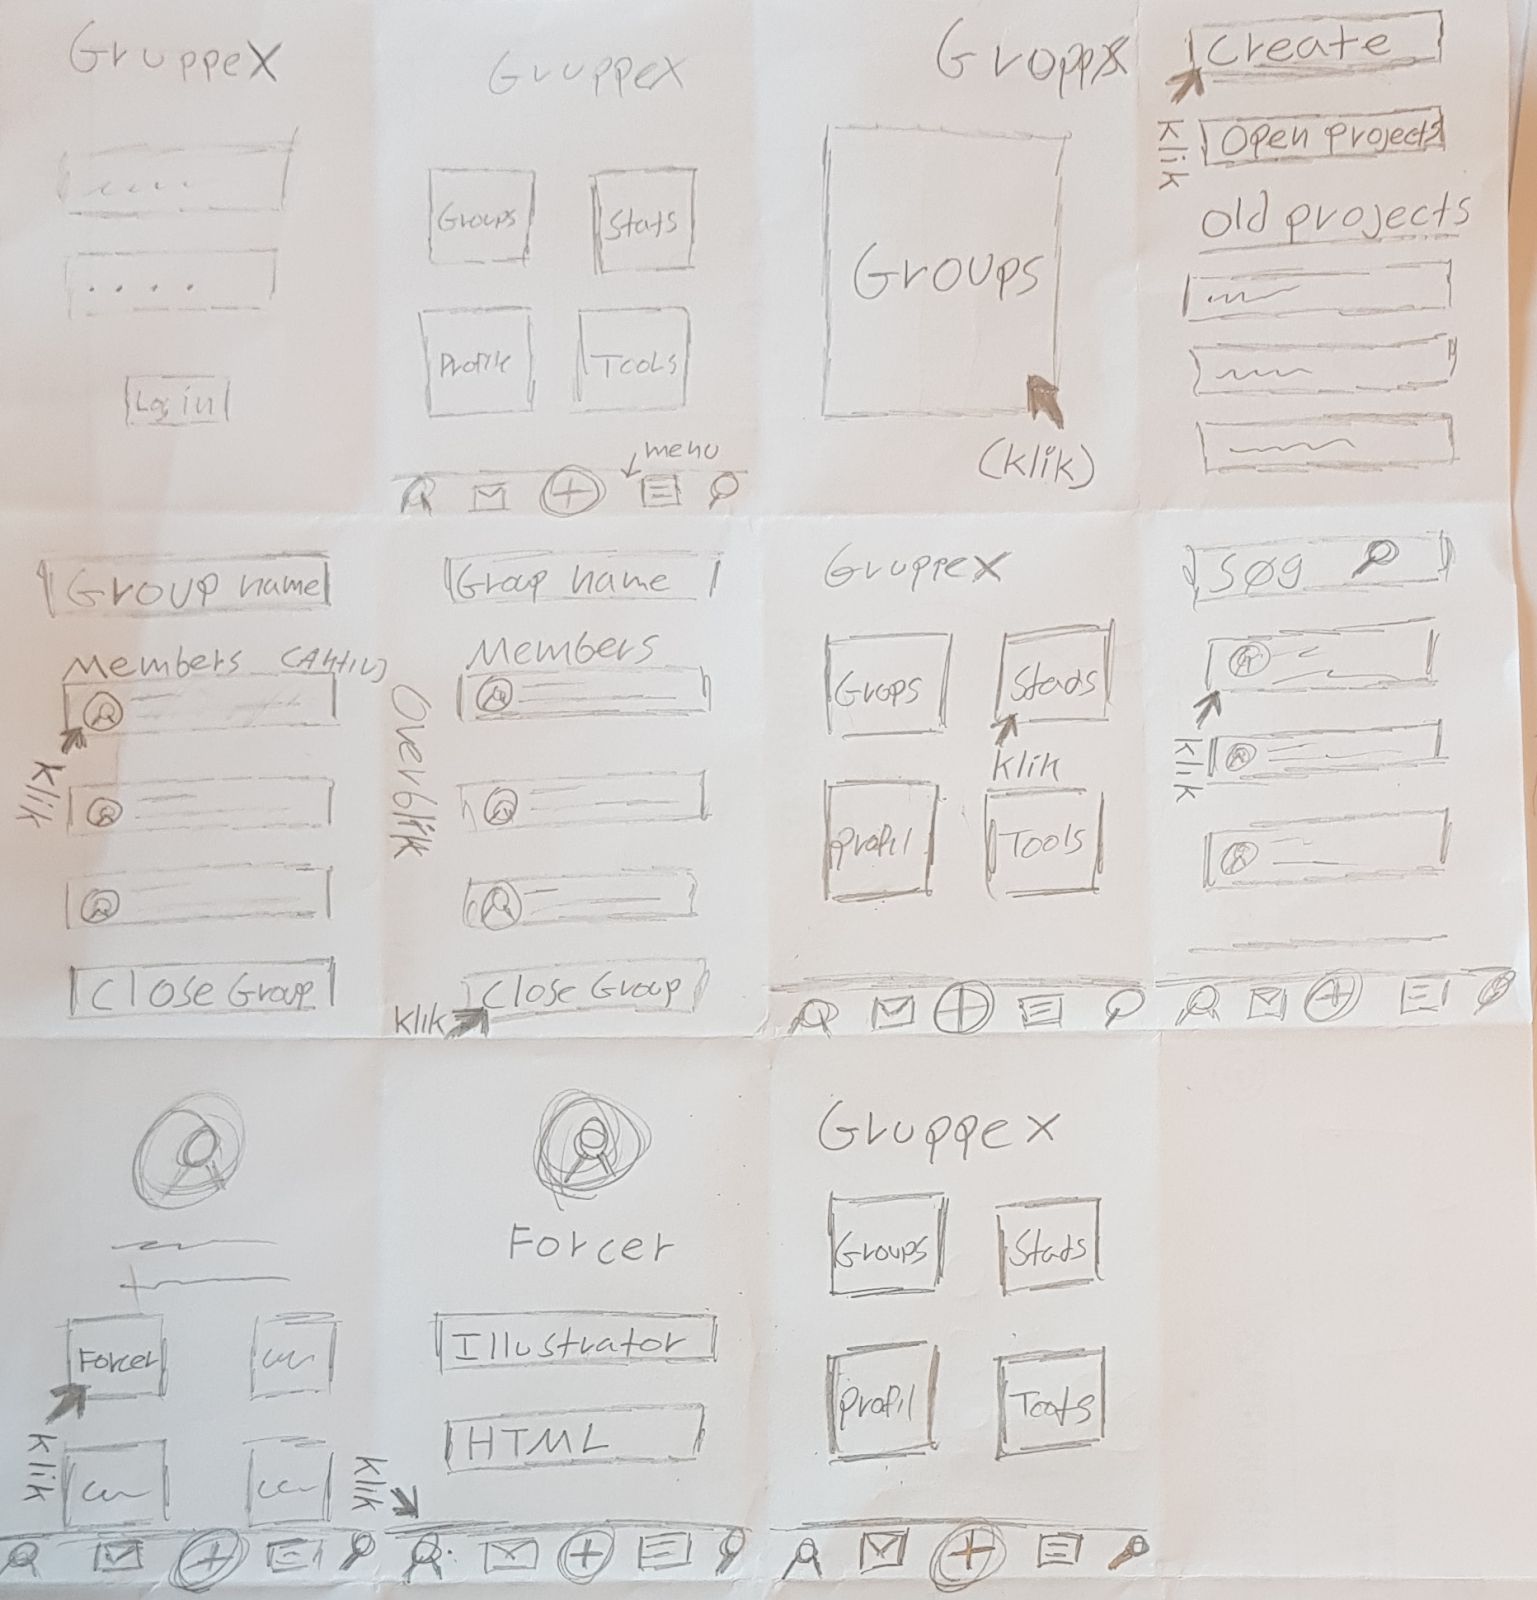 GruppeX
Log in
GruppeX
Groups
Stats
Profile
Tools
menu
GroppX
Groups
(klik)
Create
klik
Open projects
old projects
Group name
Members
klik
Close Group
Group name
Members
Overblik
Close Group
klik
GruppeX
Grops
Stads
klik
Profil
Tools
søg
klik
Forcer
klik
Forcer
Illustrator
HTML
klik
Gruppe x
Groups
Stads
Profil
Tools